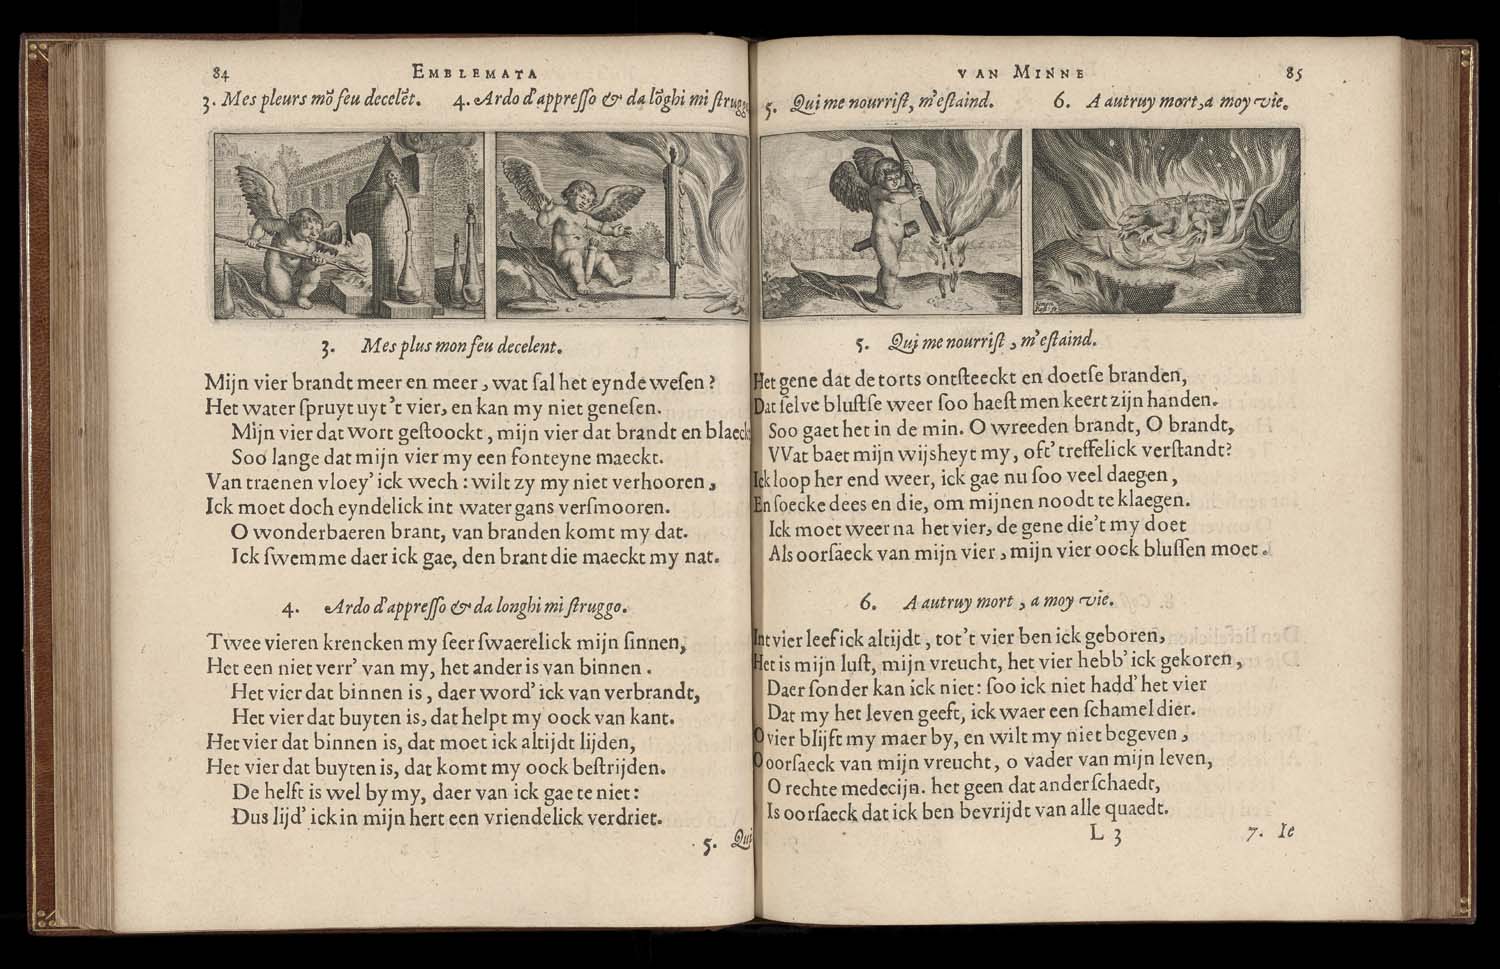 84 EMBLEMATA
3. Mes pleurs mõ feu decelẽt. 4. Ardo d'appresso & da lõghi mi strugg
3. Mes plus mon feu decelent.
Mijn vier brandt meer en meer, wat sal het eynde wesen?
Het water spruyt uyt 't vier, en kan my niet genesen.
Mijn vier dat wort gestoockt, mijn vier dat brandt en blaeckt
Soo lange dat mijn vier my een fonteyne maeckt.
Van traenen vloey' ick wech: wilt zy my niet verhooren,
Ick moet doch eyndelick int water gans versmooren.
O wonderbaeren brant, van branden komt my dat.
Ick swemme daer ick gae, den brant die maeckt my nat.
4. Ardo d'appresso & da longhi mi struggo.
Twee vieren krencken my seer swaerelick mijn sinnen,
Het een niet verr' van my, het ander is van binnen.
Het vier dat binnen is, daer word' ick van verbrandt,
Het vier dat buyten is, dat helpt my oock van kant.
Het vier dat binnen is, dat moet ick altijdt lijden,
Het vier dat buyten is, dat komt my oock bestrijden.
De helft is wel by my, daer van ick gae te niet:
Dus lijd' ick in mijn hert een vriendelick verdriet.
5. Qui
VAN MINNE 85
5. Qui me nourrist, m'estaind. 6. A autruy mort, a moy vie.
5. Qui me nourrist, m'estaind.
Het gene dat de torts ontsteeckt en doetse branden,
Dat selve blustse weer soo haest men keert zijn handen.
Soo gaet het in de min. O wreeden brandt, O brandt,
VVat baet mijn wijsheyt my, oft' treffelick verstandt?
Ick loop her end weer, ick gae nu soo veel daegen,
En soecke dees en die, om mijnen noodt te klaegen.
Ick moet weer na het vier, de gene die't my doet
Als oorsaeck van mijn vier, mijn vier oock blussen moet.
6. A autruy mort, a moy vie.
Int vier leef ick altijdt, tot 't vier ben ick geboren,
Het is mijn lust, mijn vreucht, het vier hebb' ick gekoren,
Daer sonder kan ick niet: soo ick niet hadd' het vier
Dat my het leven geeft, ick waer een schamel dier.
O vier blijft my maer by, en wilt my niet begeven,
O oorsaeck van mijn vreucht, o vader van mijn leven,
O rechte medecijn. het geen dat ander schaedt,
Is oorsaeck dat ick ben bevrijdt van alle quaedt.
L 3 7. Ie